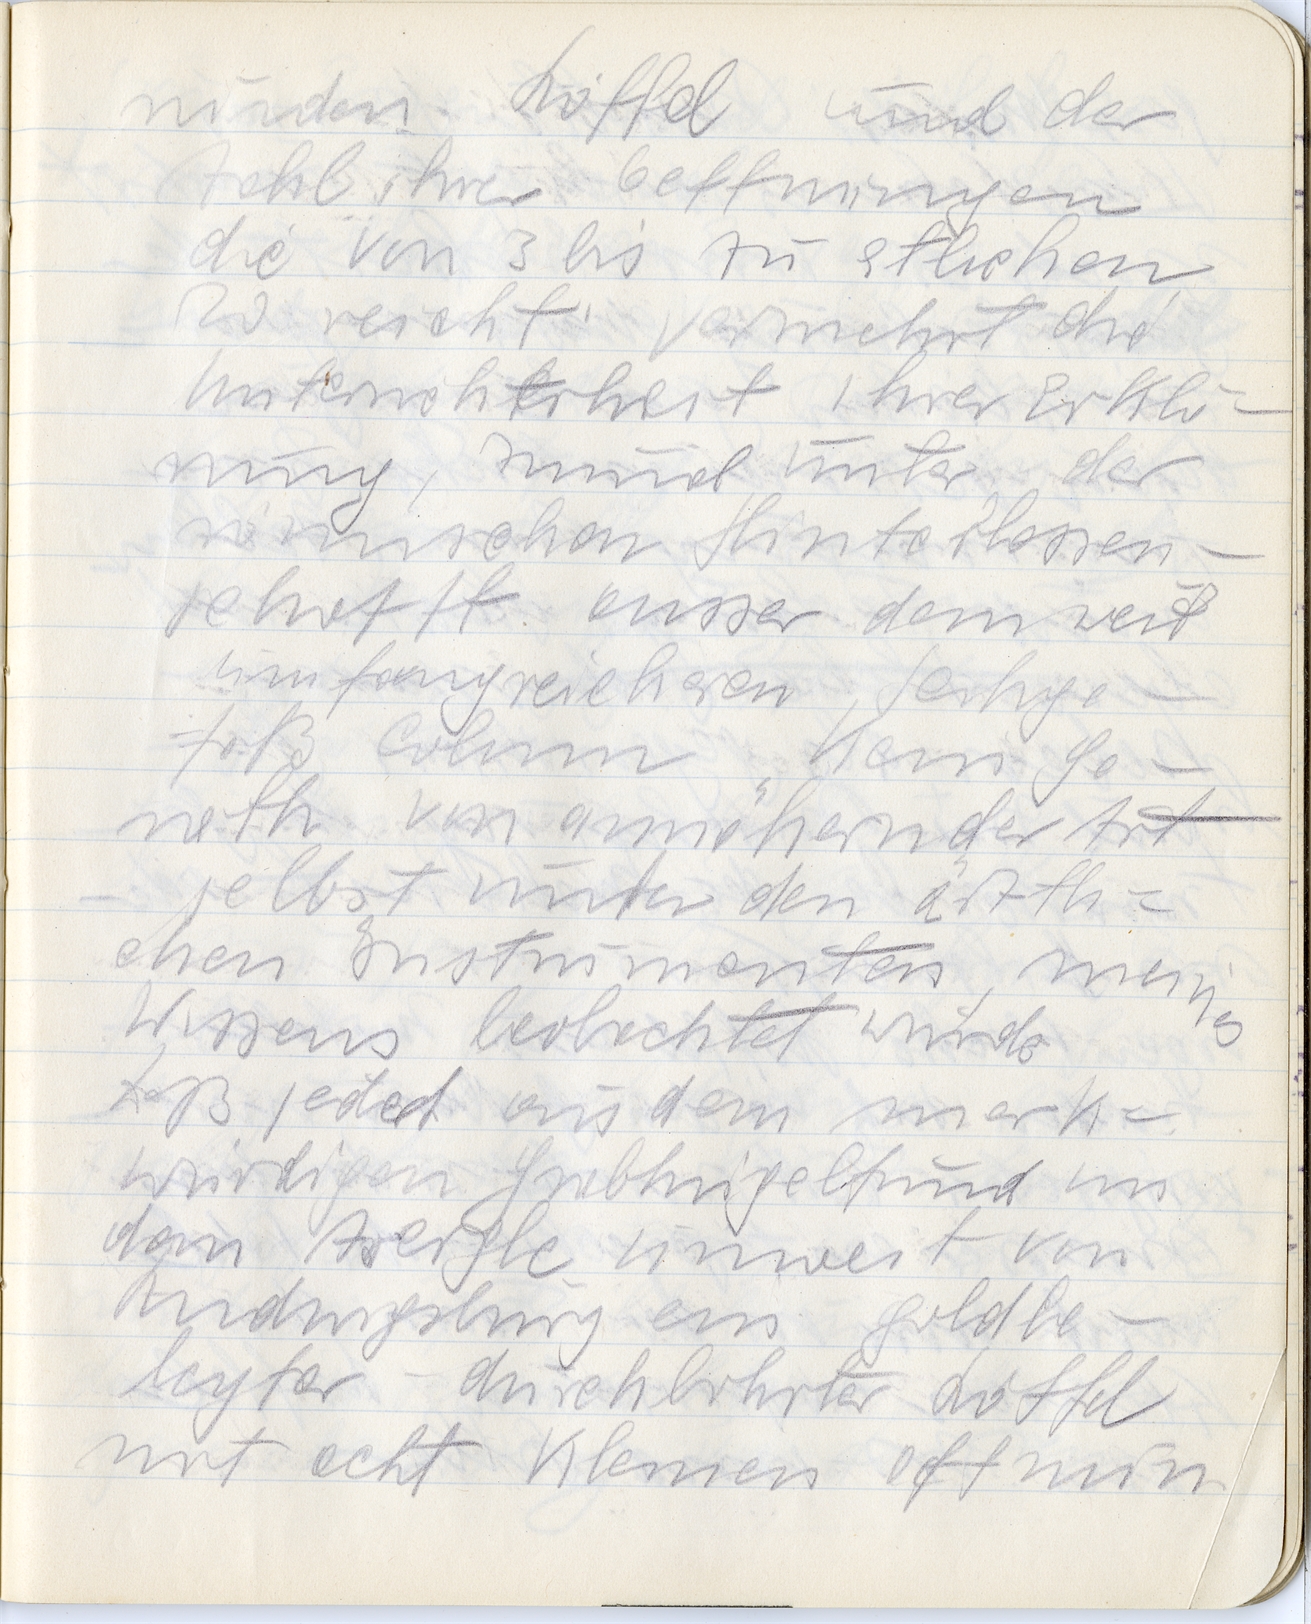 runden Löffel und der
Zahl ihrer Oeffnungen
die von 3 bis zu etlichen
20 reicht vermehrt die
Unsicherheit ihrer Erklä=
rung, zumal unter der
römischen Hinterlassen-
schaft ausser dem weit
umfangreicheren Seihge-
fäß colum kein Ge-
räth von annähernder Art
- selbst unter den ärztli=
chen Instrumenten meines
Wissens beobachtet wurde
Daß jedoch aus dem merk=
würdigen Grabhügelfund in
dem Asergle unweit von
Ludwigsburg ein goldbe-
legter - durchbohrter Löffel
mit acht kleinen Oeffnun